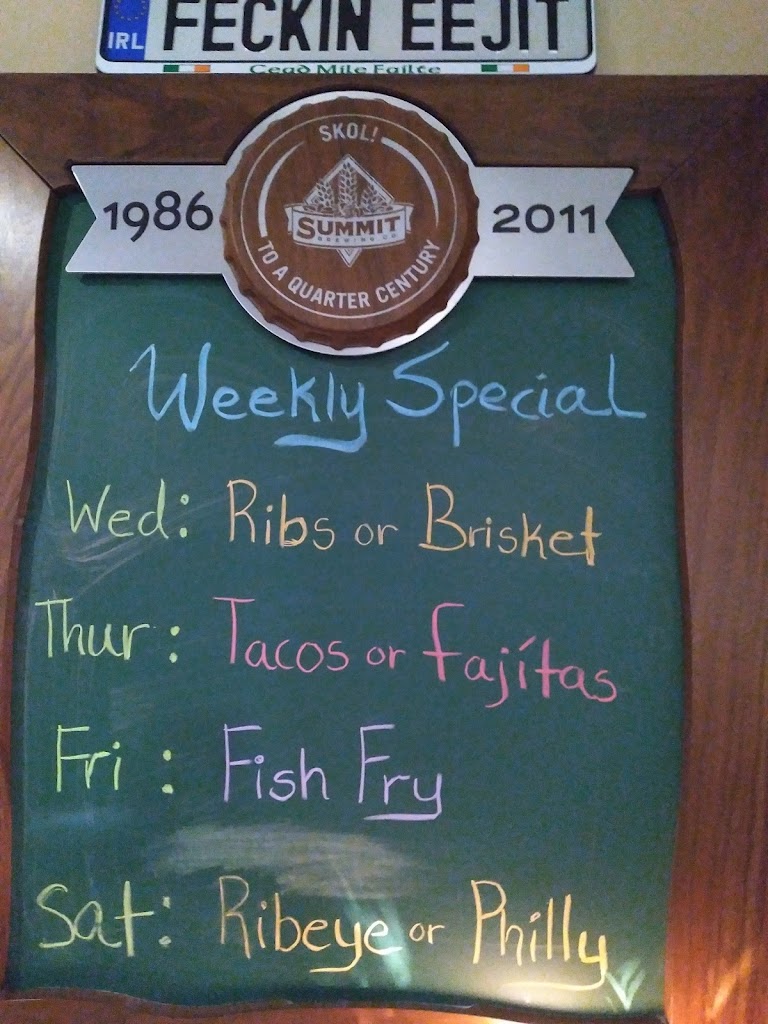 FECKIN EEJIT
IRL
Cead Mile Failte
SKOL!
1986
SUMMIT
BREWING CO.
2011
TO A QUARTER CENTURY
Weekly Special
Wed: Ribs or Brisket
Thur: Tacos or fajitas
Fri: Fish Fry
Sat: Ribeye or Philly